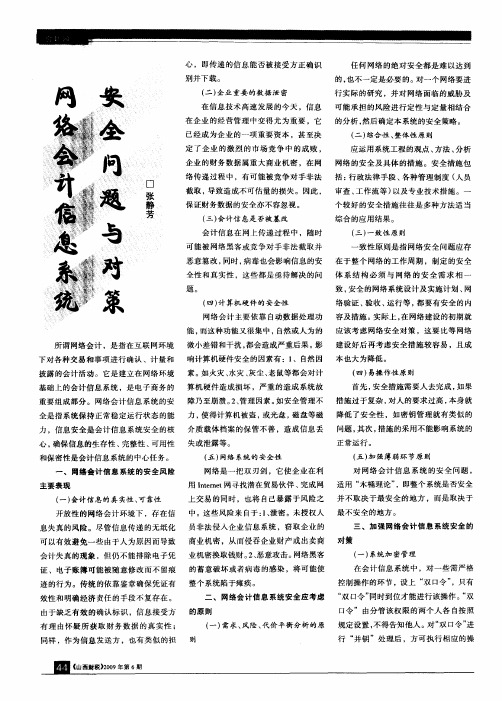 网络会计信息系统
安全问题与对策
□
张静芳
所谓网络会计，是指在互联网环境
下对各种交易和事项进行确认、计量和
披露的会计活动。它是建立在网络环境
基础上的会计信息系统，是电子商务的
重要组成部分。网络会计信息系统的安
全是指系统保持正常稳定运行状态的能
力，信息安全是会计信息系统安全的核
心，确保信息的生存性、完整性、可用性
和保密性是会计信息系统的中心任务。
一、网络会计信息系统的安全风险
主要表现
(一)会计信息的真实性、可靠性
开放性的网络会计环境下，存在信
息失真的风险。尽管信息传递的无纸化
可以有效避免一些由于人为原因而导致
会计失真的现象，但仍不能排除电子凭
证、电子账簿可能被随意修改而不留痕
迹的行为。传统的依靠鉴章确保凭证有
效性和明确经济责任的手段不复存在。
由于缺乏有效的确认标识，信息接受方
有理由怀疑所获取财务数据的真实性；
同样，作为信息发送方，也有类似的担
心，即传递的信息能否被接受方正确识
别并下载。
(二)企业重要的数据泄密
在信息技术高速发展的今天，信息
在企业的经营管理中变得尤为重要，它
已经成为企业的一项重要资本，甚至决
定了企业的激烈的市场竞争中的成败，
企业的财务数据属重大商业机密，在网
络传递过程中，有可能被竞争对手非法
截取，导致造成不可估量的损失。因此，
保证财务数据的安全亦不容忽视。
(三)会计信息是否被篡改
会计信息在网上传递过程中，随时
可能被网络黑客或竞争对手非法截取并
恶意篡改，同时，病毒也会影响信息的安
全性和真实性，这些都是亟待解决的问
题。
(四)计算机硬件的安全性
网络会计主要依靠自动数据处理功
能，而这种功能又很集中，自然或人为的
微小差错和干扰，都会造成严重后果，影
响计算机硬件安全的因素有：1、自然因
素。如火灾、水灾、灰尘、老鼠等都会对计
算机硬件造成损坏，严重的造成系统故
障乃至崩溃。2、管理因素。如安全管理不
力，使得计算机被盗，或光盘，磁盘等磁
介质载体档案的保管不善，造成信息丢
失或泄露等。
(五)网络系统的安全性
网络是一把双刃剑，它使企业在利
用 Internet 网寻找潜在贸易伙伴、完成网
上交易的同时，也将自己暴露于风险之
中。这些风险来自于：1、泄密。未授权人
员非法侵入企业信息系统，窃取企业的
商业机密，从而侵吞企业财产或出卖商
业机密换取钱财。2、恶意攻击。网络黑客
的蓄意破坏或者病毒的感染，将可能使
整个系统陷于瘫痪。
二、网络会计信息系统安全应考虑
的原则
(一)需求、风险、代价平衡分析的原
则
任何网络的绝对安全都是难以达到
的，也不一定是必要的。对一个网络要进
行实际的研究，并对网络面临的威胁及
可能承担的风险进行定性与定量相结合
的分析，然后确定本系统的安全策略。
(二)综合性、整体性原则
应运用系统工程的观点、方法、分析
网络的安全及具体的措施。安全措施包
括：行政法律手段、各种管理制度（人员
审查、工作流等）以及专业技术措施。一
个较好的安全措施往往是多种方法适当
综合的应用结果。
(三)一致性原则
一致性原则是指网络安全问题应存
在于整个网络的工作周期，制定的安全
体系结构必须与网络的安全需求相一
致，安全的网络系统设计及实施计划、网
络验证、验收、运行等，都要有安全的内
容及措施。实际上，在网络建设的初期就
应该考虑网络安全对策，这要比等网络
建设好后再考虑安全措施较容易，且成
本也大为降低。
(四)易操作性原则
首先，安全措施需要人去完成，如果
措施过于复杂，对人的要求过高，本身就
降低了安全性，如密钥管理就有类似的
问题，其次，措施的采用不能影响系统的
正常运行。
(五)加强薄弱环节原则
对网络会计信息系统的安全问题，
适用“木桶理论”，即整个系统是否安全
并不取决于最安全的地方，而是取决于
最不安全的地方。
三、加强网络会计信息系统安全的
对策
(一)系统加密管理
在会计信息系统中，对一些需严格
控制操作的环节，设上“双口令”，只有
“双口令”同时到位才能进行该操作。“双
口令”由分管该权限的两个人各自按照
规定设置，不得告知他人。对“双口令”进
行“并钥”处理后，方可执行相应的操
44 《山西财税》2009年第6期